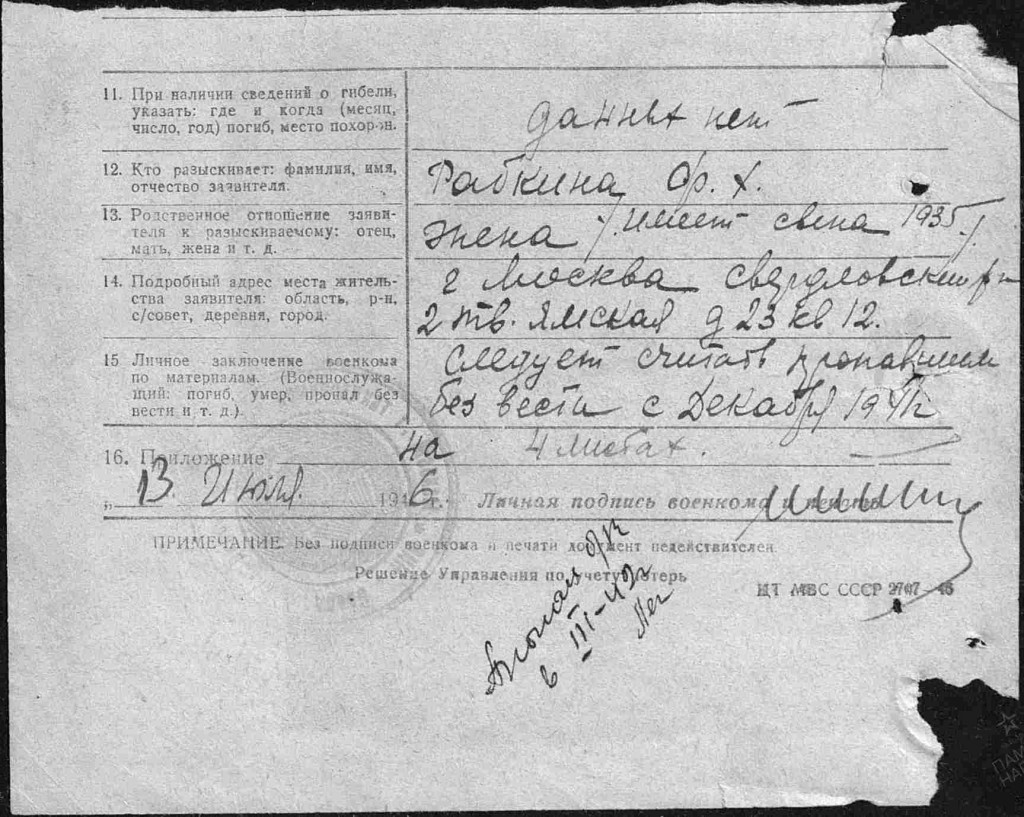 11. При наличии сведений о гибели,
указать: где и когда (месяц,
число, год) погиб, место похорон.
данных нет
12. Кто разыскивает: фамилия, имя,
отчество заявителя.
Рабкина Фр. Х.
13. Родственное отношение заяви-
теля к разыскиваемому: отец,
мать, жена и т. д.
Жена /имеет сына 1935/
14. Подробный адрес места житель-
ства заявителя: область, р-н,
с/совет, деревня, город.
г Москва Свердловский р-н
2 тв. Ямская д 23 кв 12.
15 Личное заключение военкома
по материалам. (Военнослужа-
щий: погиб, умер, пропал без
вести и т. д.).
следует считать пропавшим
без вести с Декабря 1941 г
16. Приложение на 4 листах.
"13. Июля 1946 г. Личная подпись военкома и печать
ПРИМЕЧАНИЕ. Без подписи военкома и печати документ недействителен
Решение Управления по учету потерь
ЦТ МВС СССР 2707—46
Пропал б/в
в III-42г